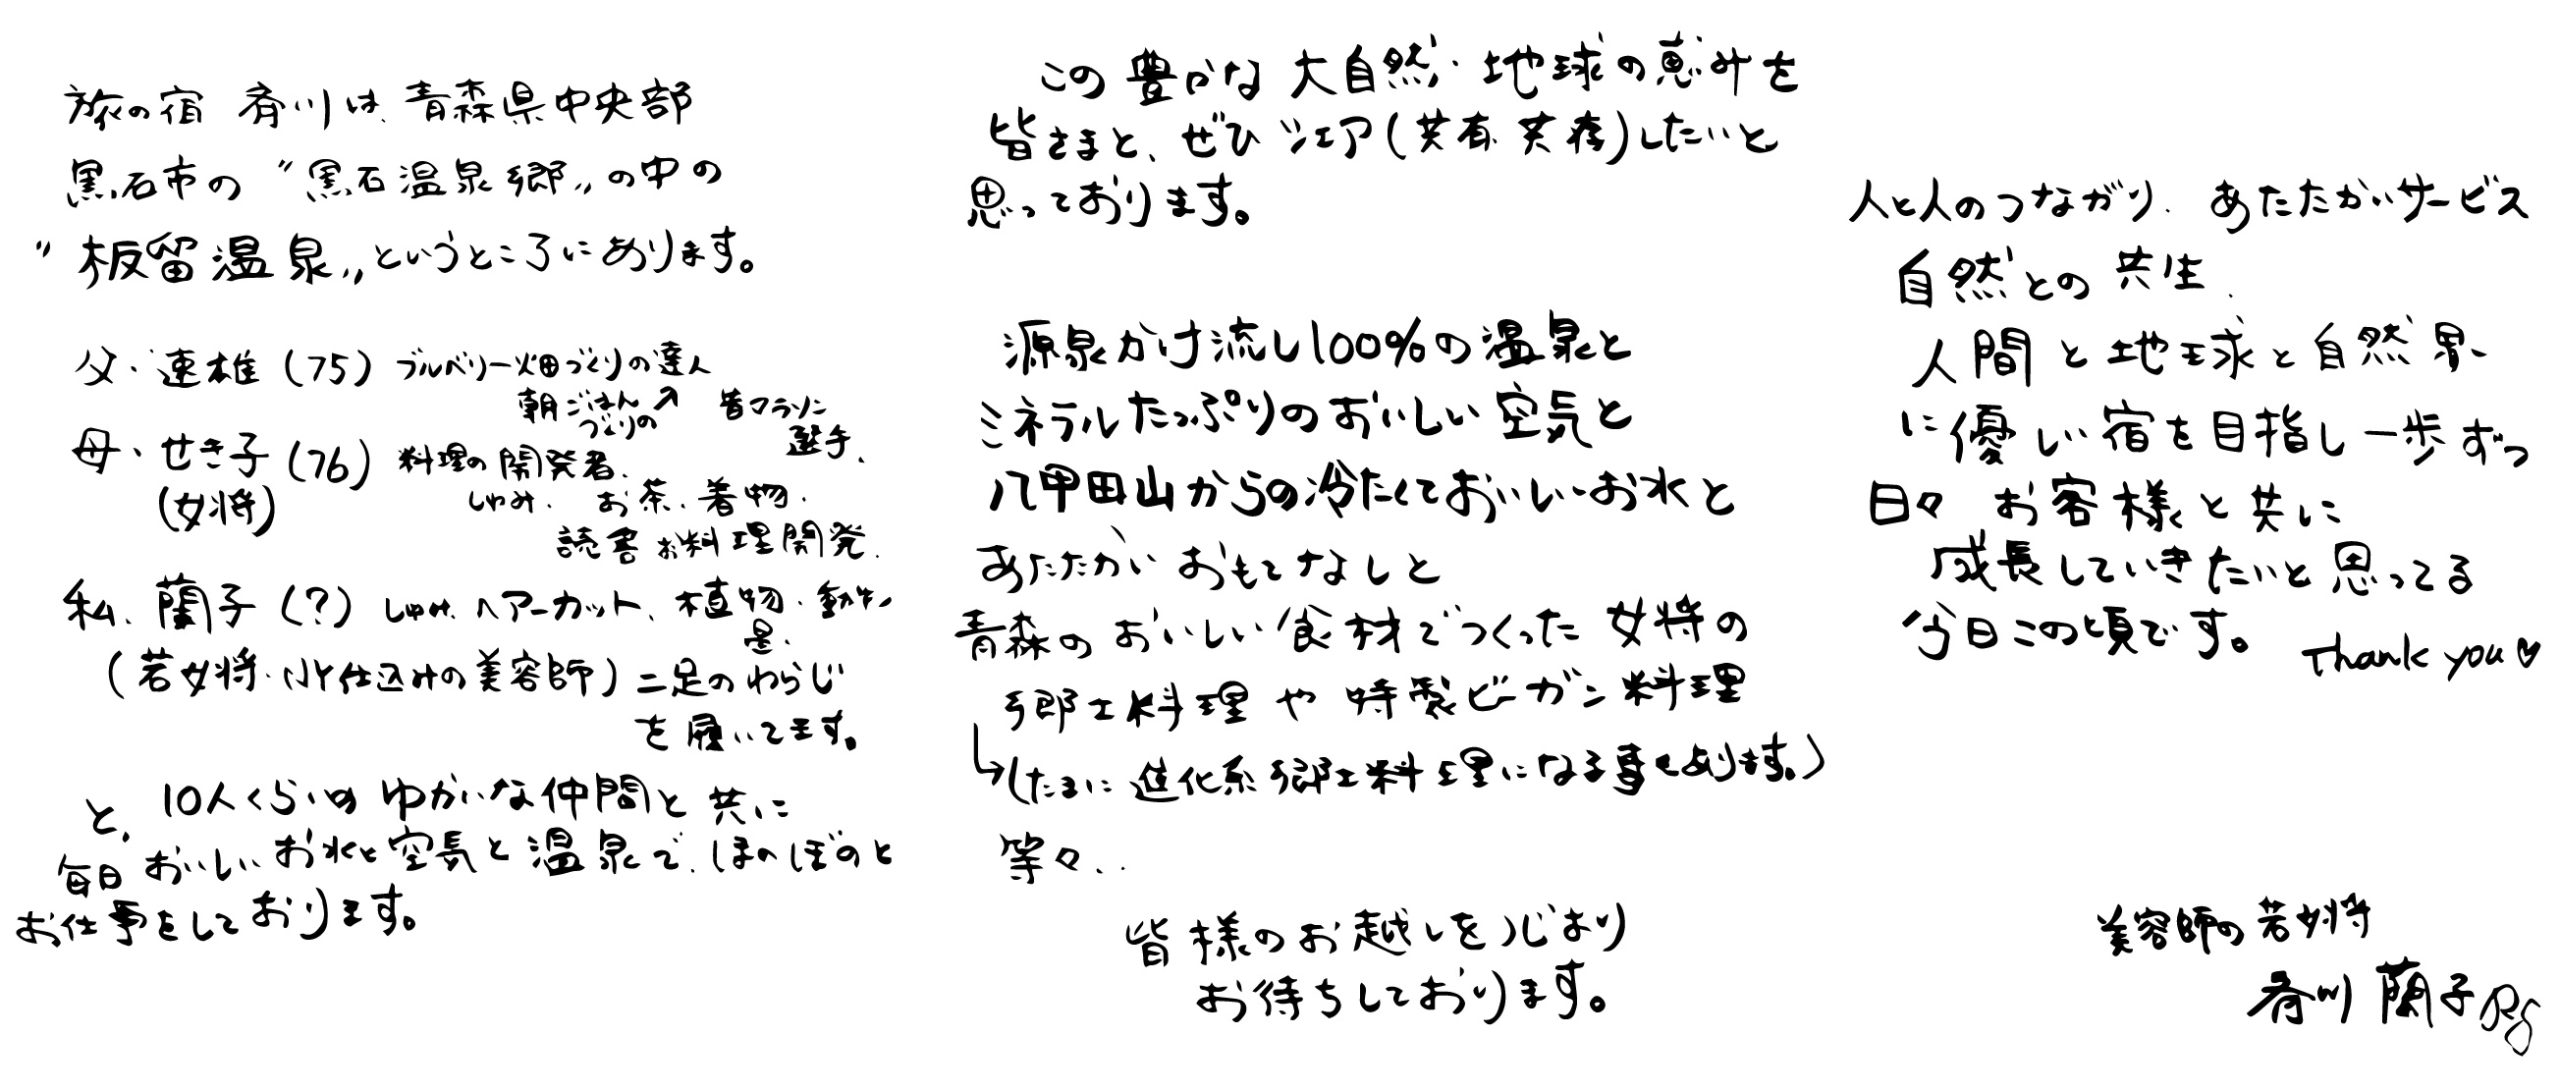 旅の宿 斉川は、青森県中央部
黒石市の〝黒石温泉郷〟の中の
〝板留温泉〟というところにあります。
父・連雄(75) ブルベリー畑づくりの達人
朝ごはんづくりの↗ 昔マラソン選手、
母、せき子(76) 料理の開発者、
(女将) しゅみ、お茶、着物、
読書 お料理開発、
私、蘭子(?) しゅみ、ヘアーカット、植物、動物、
星、
(若女将・Ny仕込みの美容師)二足のわらじ
を履いてます。
と、10人くらいの ゆかいな仲間と共に
毎日 おいしいお水と空気と温泉で、ほのぼのと
お仕事をしております。
この豊かな大自然・地球の恵みを
皆さまと、ぜひシェア(共有、共存)したいと
思っております。
源泉かけ流し100%の温泉と
ミネラルたっぷりのおいしい空気と
八甲田山からの冷たくておいしいお水と
あたたかいおもてなしと
青森のおいしい食材でつくった女将の
郷土料理や特製ビーガン料理
↳(たまに進化系郷土料理になる事もあります。)
等々..
皆様のお越しを心より
お待ちしております。
人と人のつながり、あたたかいサービス
自然との共生、
人間と地球と自然界、
に優しい宿を目指し一歩ずつ
日々 お客様と共に
成長していきたいと思ってる
今日この頃です。 Thank you♡
美容師の若女将
斉川 蘭子